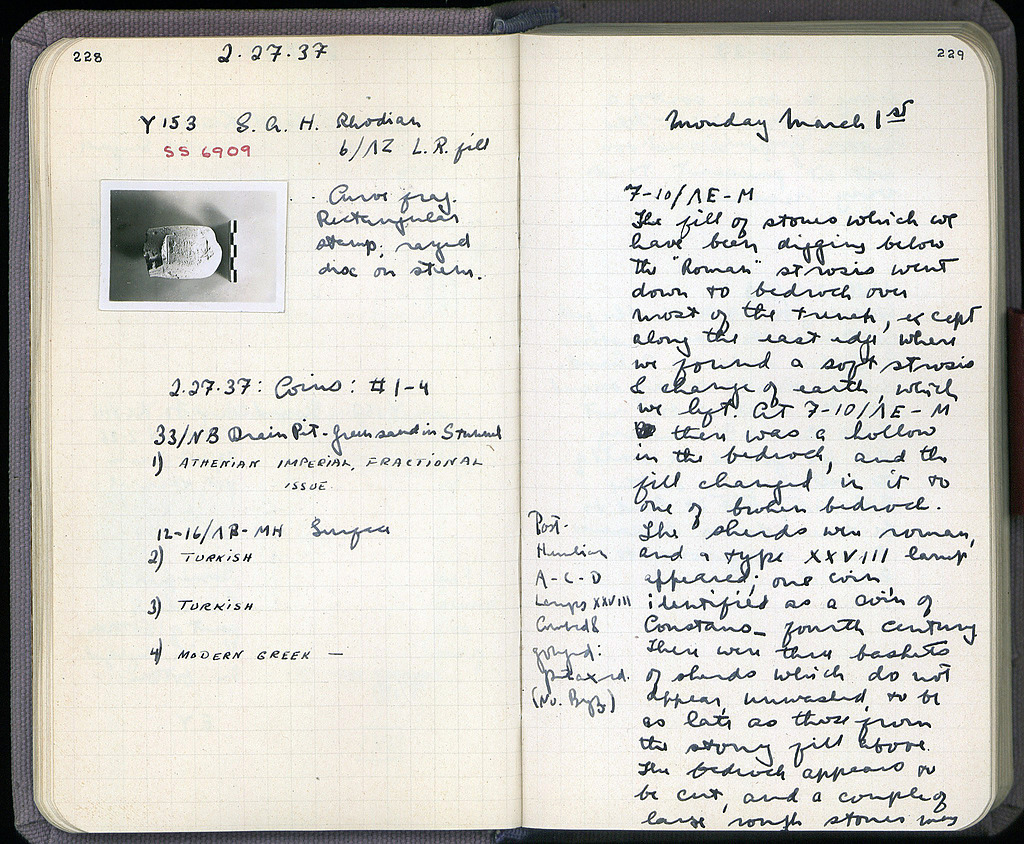 228
2·27·37
Y 153 S. A. H. Rhodian
SS 6909
6/ΛΖ L. R. fill
Curve frag.
Rectangular
stamp; rayed
disc on stem.
2·27·37: Coins: #1-4
33/ΝΒ Drain Pit - Green sand in S tunnel
1) ATHENIAN IMPERIAL, FRACTIONAL
ISSUE.
12-16/ΛΒ-ΜΗ Surface
2) TURKISH
3) TURKISH
4) MODERN GREEK —
229
Monday March 1st
7-10/ΛΕ-Μ
The fill of stones which we
have been digging below
the "Roman" strosis went
down to bedrock over
most of the trench, except
along the east edge where
we found a soft strosis
& change of earth, which
we left. At 7-10/ΛΕ-Μ
there was a hollow
in the bedrock, and the
fill changed in it to
one of broken bedrock.
The sherds were roman,
and a type XXVIII lamp
appeared; one coin,
identified as a coin of
Constans — fourth century
There were three baskets
of sherds which do not
appear, unwashed, to be
as late as those from
the stony fill above.
The bedrock appears to
be cut, and a couple of
large rough stones may
Post-
Herulian
A-C-D
Lamps XXVIII
Combed &
gouged:
(No. Byz)